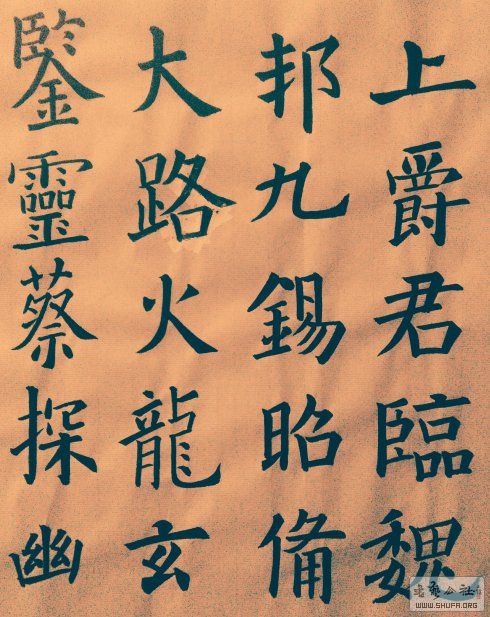 上爵君臨魏
邦九錫昭備
大路火龍玄
鑒靈蔡探幽
WWW.SHUFA.ORG